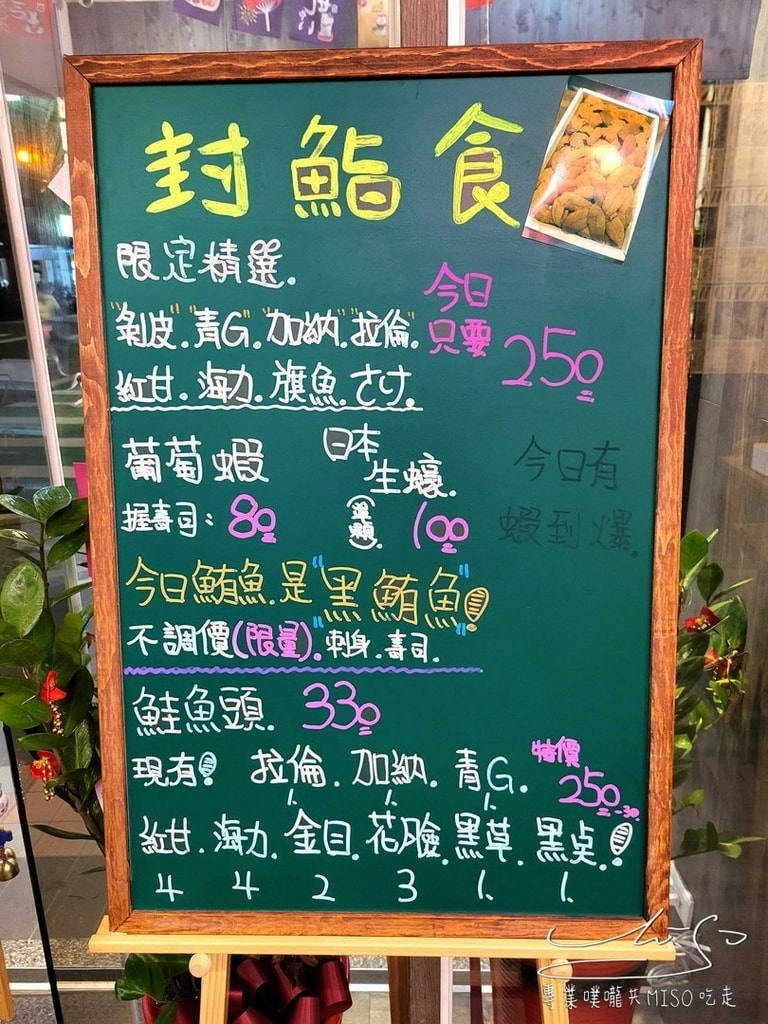 封鮨食
限定精選。
今日
只要 250
"剝皮". "青G". "加納". "拉倫".
紅甘. 海力. 旗魚. さけ.
葡萄蝦
握壽司: 80
日本
生蠔.
(單顆) 100
今日有
蝦到爆.
今日鮪魚.是"黑鮪魚"!
不調價(限量). 刺身. 壽司.
鮭魚頭. 330
現有! 拉倫. 加納. 青G. 特價 250
1. 1. 1.
紅甘. 海力. 金目. 花臉. 黑草. 黑点. !
4 4 2 3 1. 1.
MiSo
專業噗嚨共MISO吃走